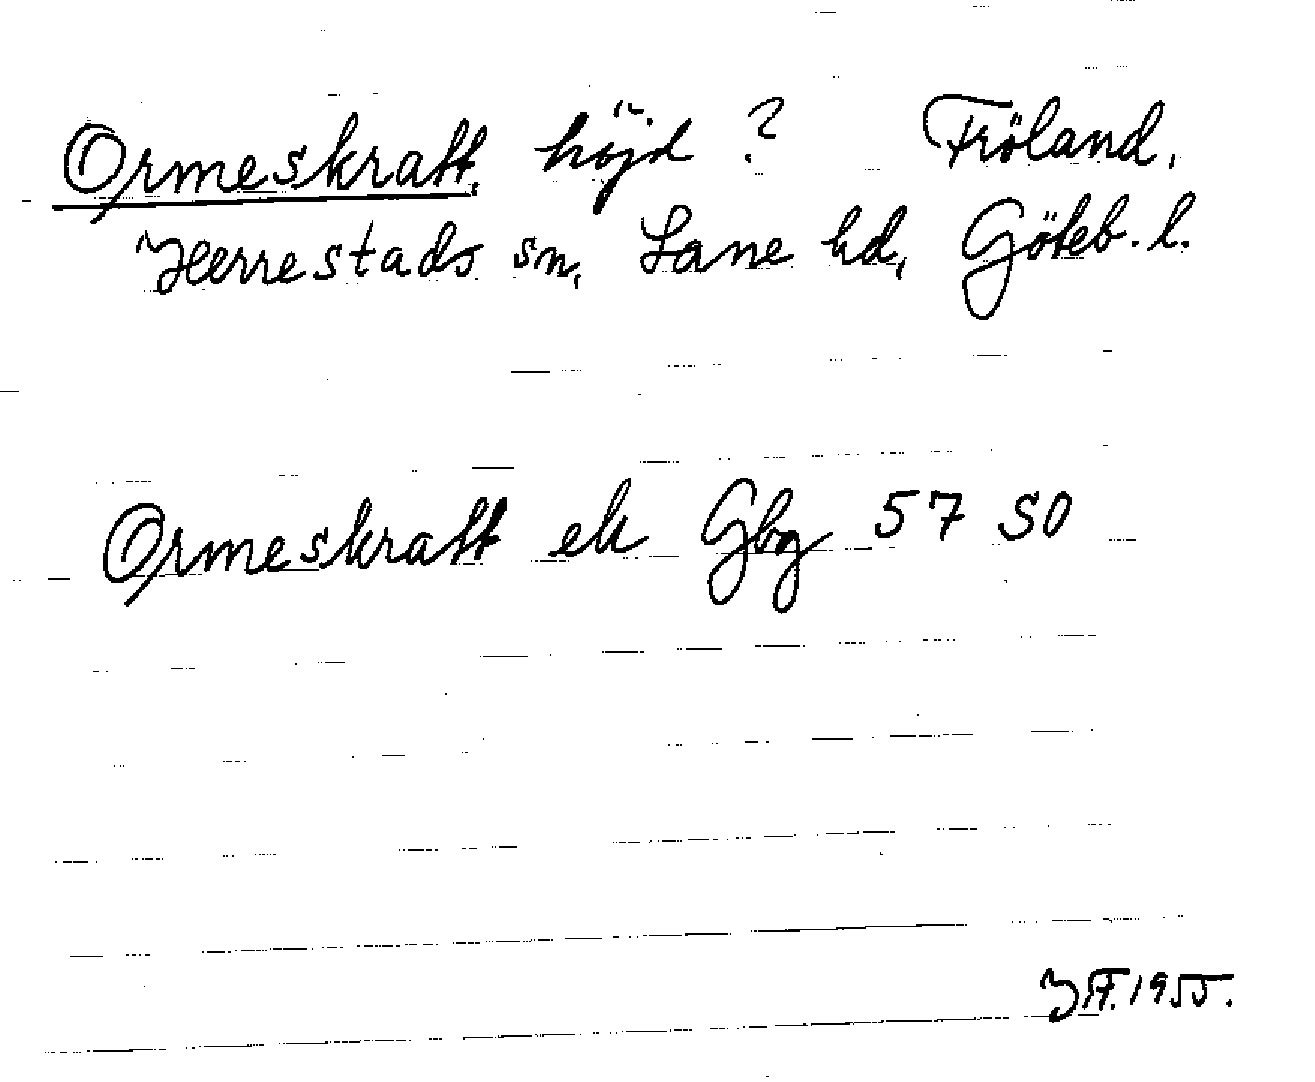 Ormeskratt, höjd ? Fröland,
Herrestads sn, Lane hd, Göteb. l.
Ormeskratt ek Gbg 57 SO
1955.